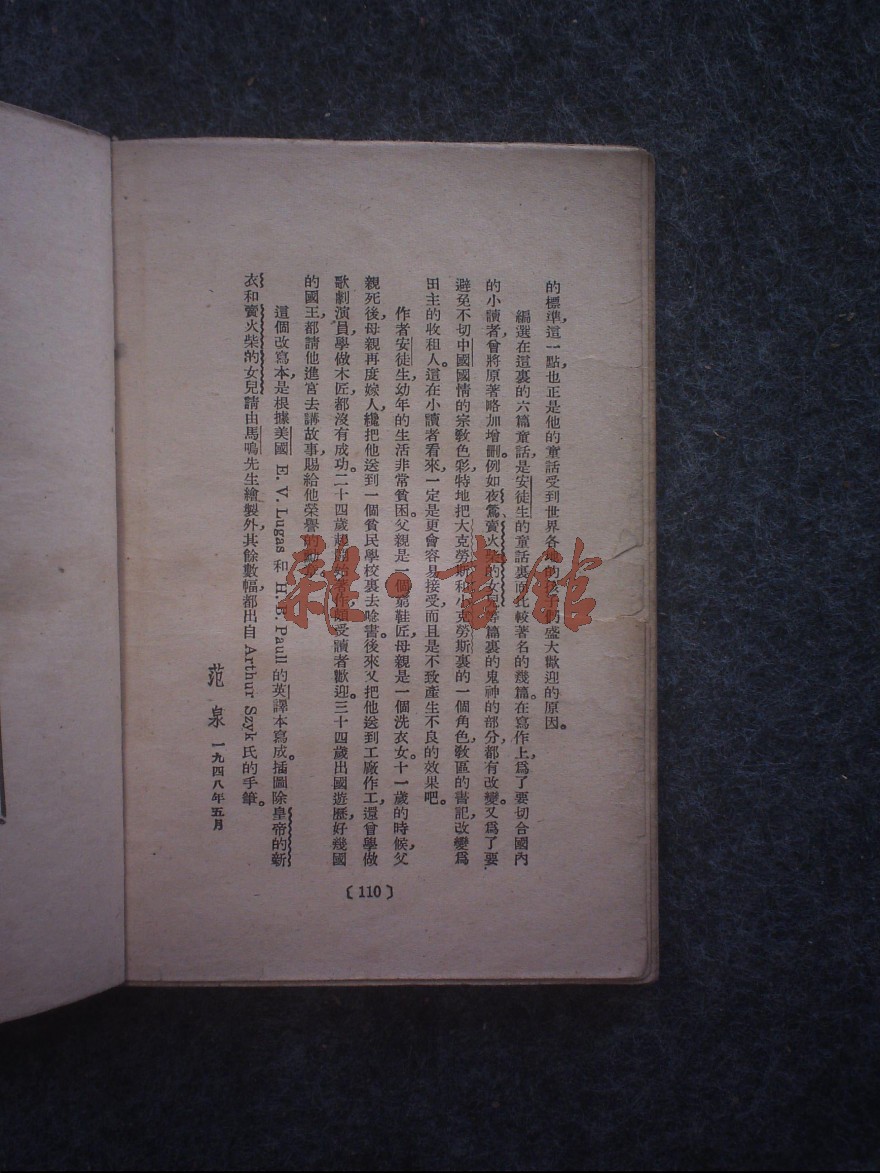 的標準,這一點也正是他的童話受到世界各地的孩子們盛大歡迎的原因。
編選在這裏的六篇童話,是安徒生的童話裏面比較著名的幾篇。在寫作上,爲了要切合國內
的小讀者,曾將原著略加增刪。例如夜鶯、賣火柴的女兒等篇裏的鬼神的部分,都有改變。又爲了要
避免不切中國國情的宗敎色彩,特地把大克勞斯和小克勞斯裏的一個角色,敎區的書記,改變爲
田主的收租人。這在小讀者看來,一定是更會容易接受,而且是不致產生不良的效果吧。
作者安徒生,幼年的生活非常貧困。父親是一個窮鞋匠,母親是一個洗衣女。十一歲的時候,父
親死後,母親再度嫁人,纔把他送到一個貧民學校裏去唸書。後來又把他送到工廠作工,還曾學做
歌劇演員,學做木匠,都沒有成功。二十四歲起開始著作,頗受讀者歡迎。三十四歲出國遊歷,好幾國
的國王,都請他進宮去講故事,賜給他榮譽的勳
這個改寫本,是根據美國 E. V. Lugas 和 H. B. Paull 的英譯本寫成。插圖除皇帝的新
衣和賣火柴的女兒請由馬鳴先生繪製外,其餘數幅,都出自 Arthur Szyk 氏的手筆。
范泉 一九四八年五月
〔110〕
雜·書館